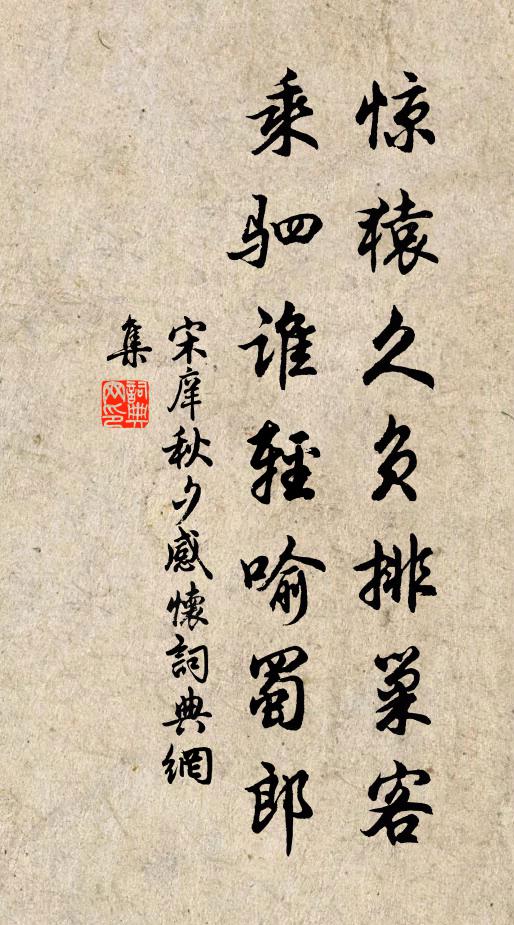 惊猿久负排巢客
乘驷谁轻喻蜀郎
宋庠秋夕感懷詞典網
集
詞典網印